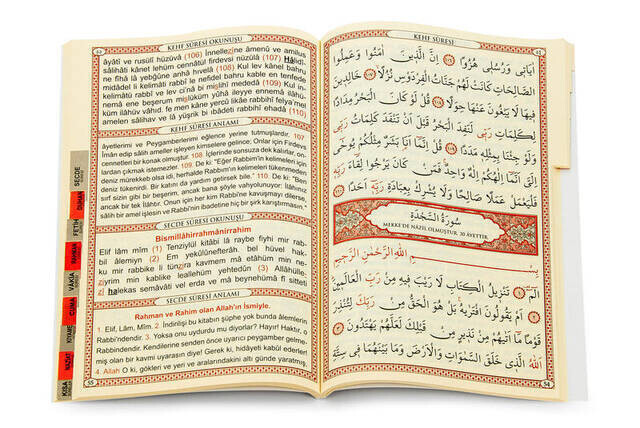 KEHF SÛRESİ OKUNUŞU
âyâtî ve rusülî hüzüvâ (106) İnnellezîne âmenû ve amilus
sâlihâti kânet lehüm cennâtül firdevsi nüzülâ (107) Hâlidî-
ne fîhâ lâ yebğûne anhâ hıvelâ (108) Kul lev kânel bahru
midâdel li kelimâti rabbî le nefidel bahru kable en tenfede
kelimâtü rabbî ve lev ci'nâ bi mislihî mededâ (109) Kul inne-
mâ ene beşerum mislüküm yûhâ ileyye ennemâ ilâhü-
küm ilâhüv vâhid. fe men kâne yercû likâe rabbihî felya'mel
amelen sâlihav ve lâ yüşrik bi ıbâdeti rabbihî ehadâ (110)
KEHF SÛRESİ ANLAMI
âyetlerimi ve Peygamberlerimi eğlence yerine tutmuşlardır. 107
İman edip sâlih ameller işleyen kimselere gelince; Onlar için Firdevs
cennetleri bir konak olmuştur. 108 İçlerinde sonsuza dek kalırlar, on-
lardan çıkmak istemezler. 109. De ki: "Eğer Rabbim'in kelimeleri için
deniz mürekkeb olsa idi, herhalde Rabbım'ın kelimeleri tükenmeden
deniz tükenirdi. Bir katını da yardım getirsek bile." 110. De ki: "Ben
sırf sizin gibi bir beşerim, ancak bana şöyle vahyolunuyor: İlâhınız
ancak bir tek ilâhtır. Onun için her kim Rabbi'ne kavuşmayı dilerse,
sâlih bir amel işlesin ve Rabbi'nin ibadetine hiç bir şirk karıştırmasın."
SECDE SÛRESİ OKUNUŞU
Bismillâhirrahmânirrahim
Elif lâm mîm (1) Tenzîylül kitâbi lâ raybe fîyhi mir rab-
bil âlemiyn (2) Em yekûlûnefterâh. bel hüvel hak-
ku mir rabbike li tünzira kavmem mâ etâhüm min ne-
ziyrim min kablike leallehüm yehtedûn (3) Allâhülle-
zî halekas semâvâti vel erda ve mâ beynehümâ fî sitteti
SECDE SÛRESİ ANLAMI
Rahman ve Rahim olan Allah'ın İsmiyle.
1. Elif, Lâm, Mîm. 2. İndirilişi bu kitabın şüphe yok bunda âlemlerin
Rabbi'ndendir. 3. Yoksa onu uydurdu mu diyorlar? Hayır! Haktır, o
Rabbindendir. Kendilerine senden önce uyarıcı peygamber gelme-
miş olan bir kavmi uyarasın diye! Gerek ki, hidâyeti kabûl ederler!
4. Allah O ki, gökleri ve yeri ve aralarındakini altı günde yaratmış,
55
SECDE
DUHAN
FETİH
RAHMAN
VÂKIA
CUMA
KIYAME
KISA
KEHF SÛRESİ
اٰيَاتِي وَرُسُلِي هُزُوًا ﴿١٠٦﴾ اِنَّ الَّذِينَ اٰمَنُوا وَعَمِلُوا
الصَّالِحَاتِ كَانَتْ لَهُمْ جَنَّاتُ الْفِرْدَوْسِ نُزُلًا ﴿١٠٧﴾ خَالِدِينَ
فِيهَا لَا يَبْغُونَ عَنْهَا حِوَلًا ﴿١٠٨﴾ قُلْ لَوْ كَانَ الْبَحْرُ مِدَادًا
لِكَلِمَاتِ رَبِّي لَنَفِدَ الْبَحْرُ قَبْلَ اَنْ تَنْفَدَ كَلِمَاتُ رَبِّي
وَلَوْ جِئْنَا بِمِثْلِهِ مَدَدًا ﴿١٠٩﴾ قُلْ اِنَّمَا اَنَا بَشَرٌ مِثْلُكُمْ يُوحٰى
اِلَيَّ اَنَّمَا اِلٰهُكُمْ اِلٰهٌ وَاحِدٌ فَمَنْ كَانَ يَرْجُوا لِقَاءَ رَبِّهِ
فَلْيَعْمَلْ عَمَلًا صَالِحًا وَلَا يُشْرِكْ بِعِبَادَةِ رَبِّهِ اَحَدًا ﴿١١٠﴾
سُورَةُ السَّجْدَةِ
MEKKE'DE NÂZİL OLMUŞTUR. 30 ÂYETTİR.
بِسْمِ اللّٰهِ الرَّحْمٰنِ الرَّحِيمِ
الٓمٓ ﴿١﴾ تَنْزِيلُ الْكِتَابِ لَا رَيْبَ فِيهِ مِنْ رَبِّ الْعَالَمِينَ
﴿٢﴾ اَمْ يَقُولُونَ افْتَرٰيهُ بَلْ هُوَ الْحَقُّ مِنْ رَبِّكَ لِتُنْذِرَ
قَوْمًا مَا اَتٰيهُمْ مِنْ نَذِيرٍ مِنْ قَبْلِكَ لَعَلَّهُمْ يَهْتَدُونَ ﴿٣﴾
اَللّٰهُ الَّذِي خَلَقَ السَّمٰوَاتِ وَالْاَرْضَ وَمَا بَيْنَهُمَا فِي سِتَّةِ
54